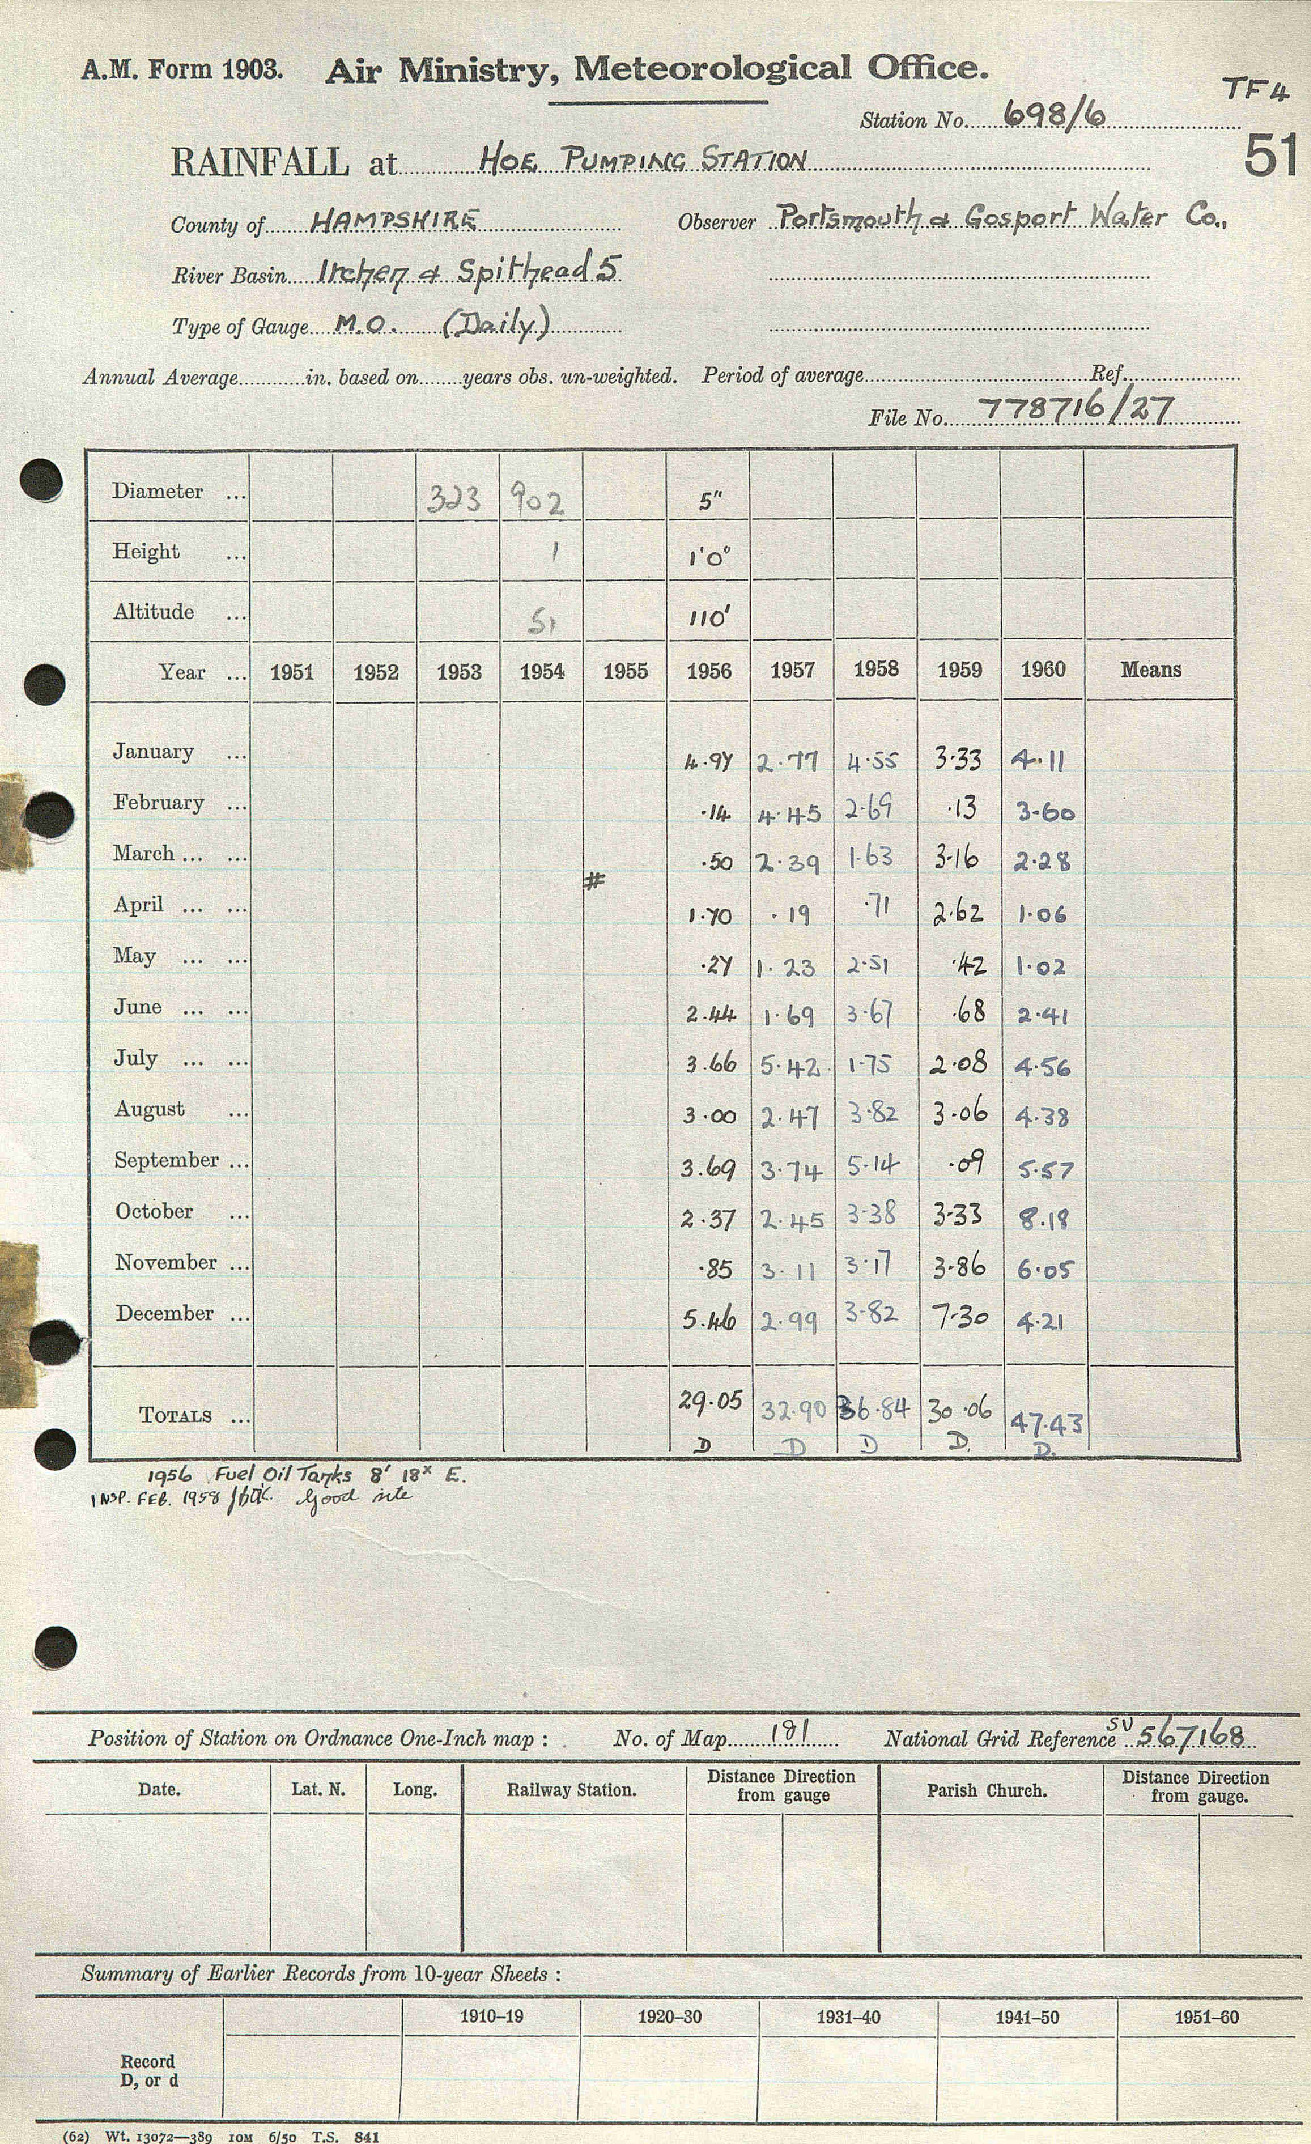 A.M. Form 1903. Air Ministry, Meteorological Office.
TF4
Station No. 698/6
51
RAINFALL at HOE PUMPING STATION
County of HAMPSHIRE Observer Portsmouth & Gosport Water Co.,
River Basin Itchen & Spithead 5
Type of Gauge M.O. (Daily)
Annual Average in. based on years obs. un-weighted. Period of average Ref.
File No. 778716/27
Diameter ... 323 902 5"
Height ... 1 1'0"
Altitude ... 51 110'
Year ... 1951 1952 1953 1954 1955 1956 1957 1958 1959 1960 Means
January ... 4.97 2.77 4.55 3.33 4.11
February ... .14 4.45 2.69 .13 3.60
March ... ... .50 2.39 1.63 3.16 2.28
#
April ... ... 1.70 .19 .71 2.62 1.06
May ... ... .27 1.23 2.51 .42 1.02
June ... ... 2.44 1.69 3.67 .68 2.41
July ... ... 3.66 5.42 1.75 2.08 4.56
August ... 3.00 2.47 3.82 3.06 4.38
September ... 3.69 3.74 5.14 .09 5.57
October ... 2.37 2.45 3.38 3.33 8.18
November ... .85 3.11 3.17 3.86 6.05
December ... 5.46 2.99 3.82 7.30 4.21
TOTALS ... 29.05 32.90 36.84 30.06 47.43
D D D D. D.
1956 Fuel Oil Tanks 8' 18x E.
INSP. FEB. 1958 Good site
Position of Station on Ordnance One-Inch map : No. of Map 181 National Grid Reference SU 567168
Date. Lat. N. Long. Railway Station. Distance Direction from gauge Parish Church. Distance Direction from gauge.
Summary of Earlier Records from 10-year Sheets :
1910–19 1920–30 1931–40 1941–50 1951–60
Record
D, or d
(62) Wt. 13072—389 10M 6/50 T.S. 841